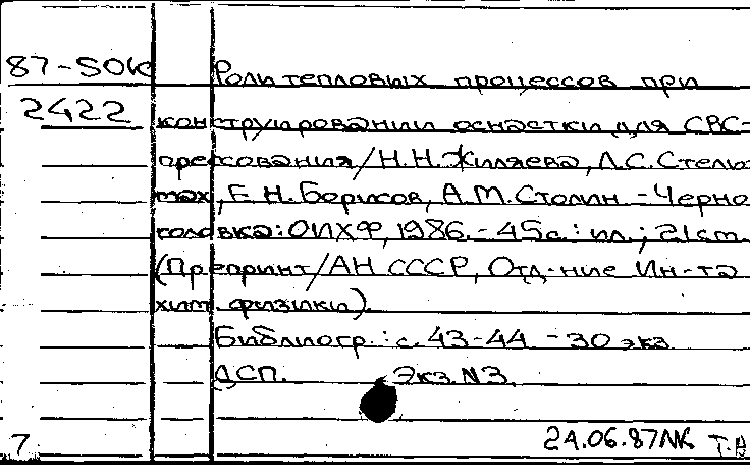 87-50к Роли тепловых процессов при
2422 конструировании оснастки для СВС-
прессования/Н.Н.Жиляева, Л.С.Стельо
мах, Е.Н.Борисов, А.М.Столин -Черно
головка: ОИХФ, 1986.-45с.: ил.; 21см.
(Препринт/АН СССР, Отд-ние Ин-та
хим. физики).
Библиогр.: с. 43-44. - 30 экз.
ДСП. Экз.N3.
7 24.06.87NК Т.